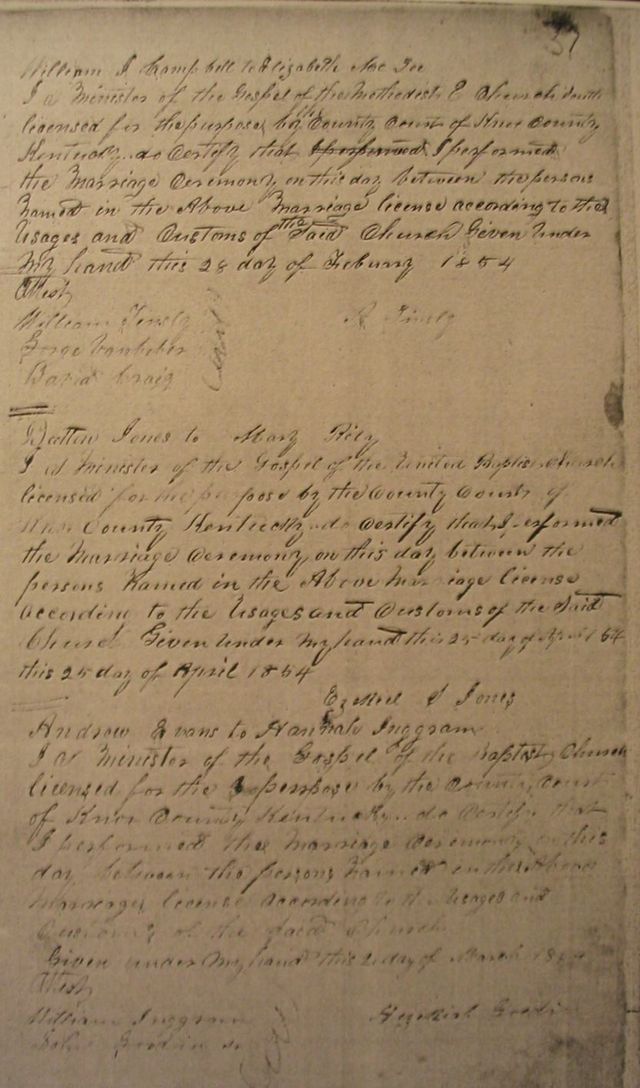 37
William J Campbell to Elizabeth Mc
I a Minister of the Gospel of the Methodist E Church South
licensed for the purpose by the County Court of Knox County
Kentucky do Certify that I performed
the Marriage Ceremony on this day between the persons
Named in the Above Marriage license according to the
Usages and Customs of the Said Church Given Under
My hand this 28 day of Feburry 1854
Attest
William
George Vanbeber
David Craig
Jones to Mary Rily
I a Minister of the Gospel of the United Baptist Church
licensed for the purpose by the County Court of
Knox County Kentucky do Certify that I performed
the Marriage Ceremony on this day between the
persons Named in the Above Marriage license
according to the Usages and Customs of the Said
Church Given Under My hand this 25 day of April 54
this 25 day of April 1854
Ezekiel S Jones
Andrew Evans to Hannah Inggram
I a Minister of the Gospel of the Baptist Church
licensed for the perpose by the County Court
of Knox County Kentucky do Certify that
I performed the Marriage Ceremony on this
day between the persons Named in the Above
Marriage license according to the Usages and
Customs of the said Church
Given under My hand this 2 day of March
Attest
William Inggram
Hezekiah Goodin
John Goodin